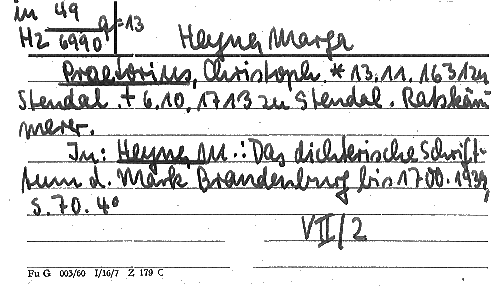 in 49
Hz 6990 q = 13
Heyne, Marga
Praetorius, Christoph. * 13.11.1631 zu
Stendal. + 6.10.1713 zu Stendal. Ratskäm-
merer.
In: Heyne, M.: Das dichterische Schrift-
tum d. Mark Brandenburg bis 1700. 1939,
S. 70. 4°
VII/2
Fu G 003/60 I/16/7 Z 179 C